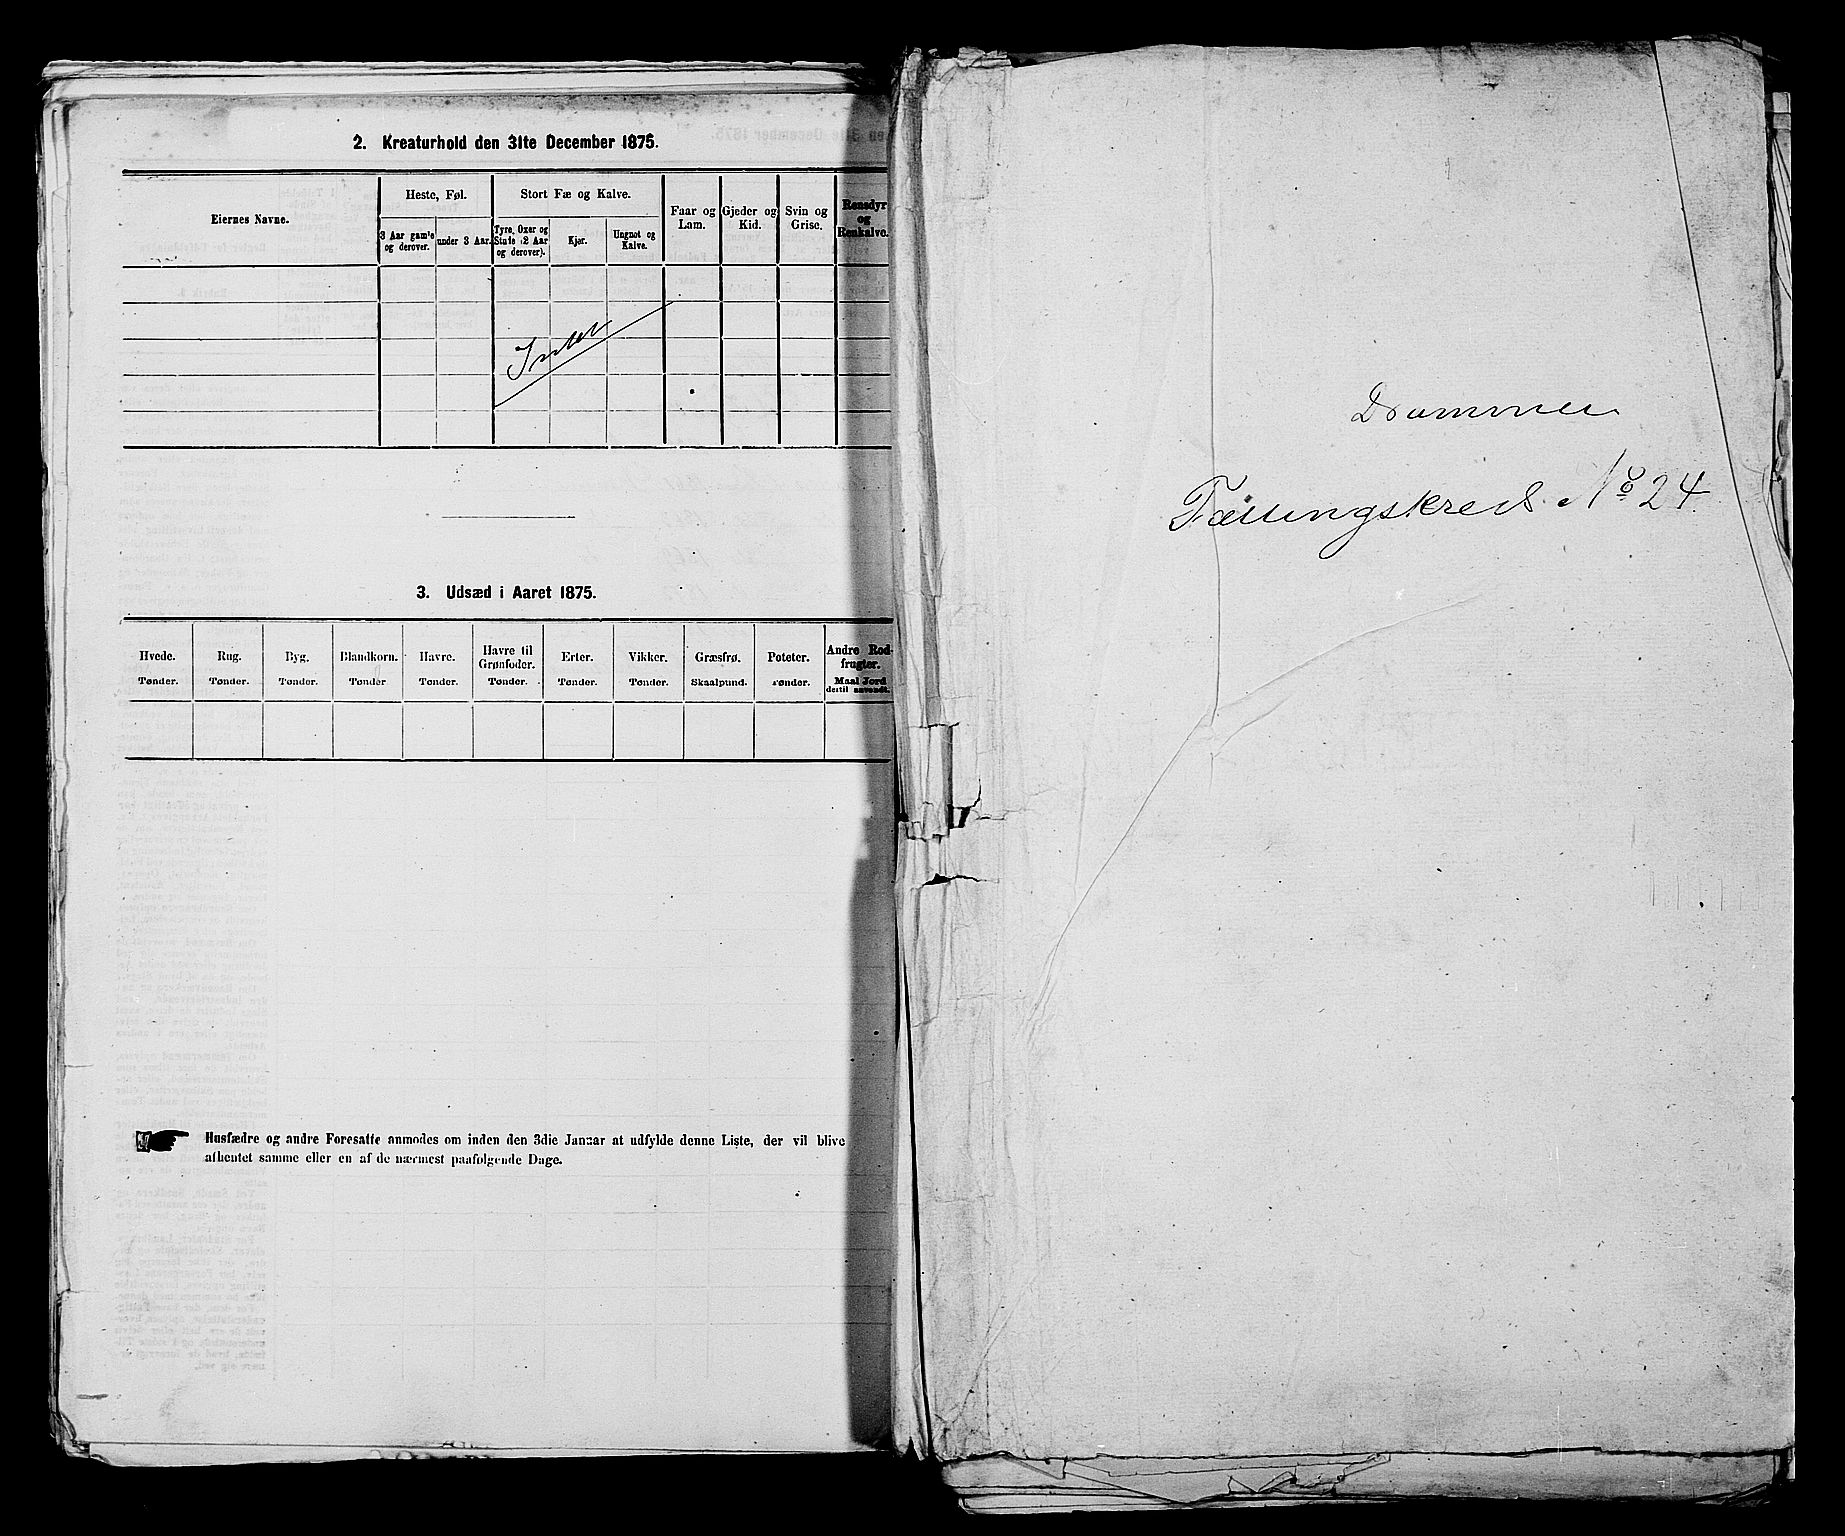 2. Kreaturhold den 31te December 1875.
Eiernes Navne.
Heste, Føl.
Stort Fæ og Kalve.
Faar og Lam.
Gjeder og Kid.
Svin og Grise.
Rensdyr og Renkalve.
3 Aar gam'e og derover.
under 3 Aar.
Tyre, Oxer og Stude (2 Aar og derover).
Kjør.
Ungnøt og Kalve.
Intet
3. Udsæd i Aaret 1875.
Hvede. Tønder.
Rug. Tønder.
Byg. Tønder.
Blandkorn. Tønder
Havre. Tønder.
Havre til Grønfoder. Tønder.
Erter. Tønder.
Vikker. Tønder.
Græsfrø. Skaalpund.
Poteter. Tønder.
Andre Rodfrugter. Maal Jord dertil anvendt.
Husfædre og andre Foresatte anmodes om inden den 3die Januar at udfylde denne Liste, der vil blive
afhentet samme eller en af de nærmest paafølgende Dage.
Drammen
Tællingskreds No 24.